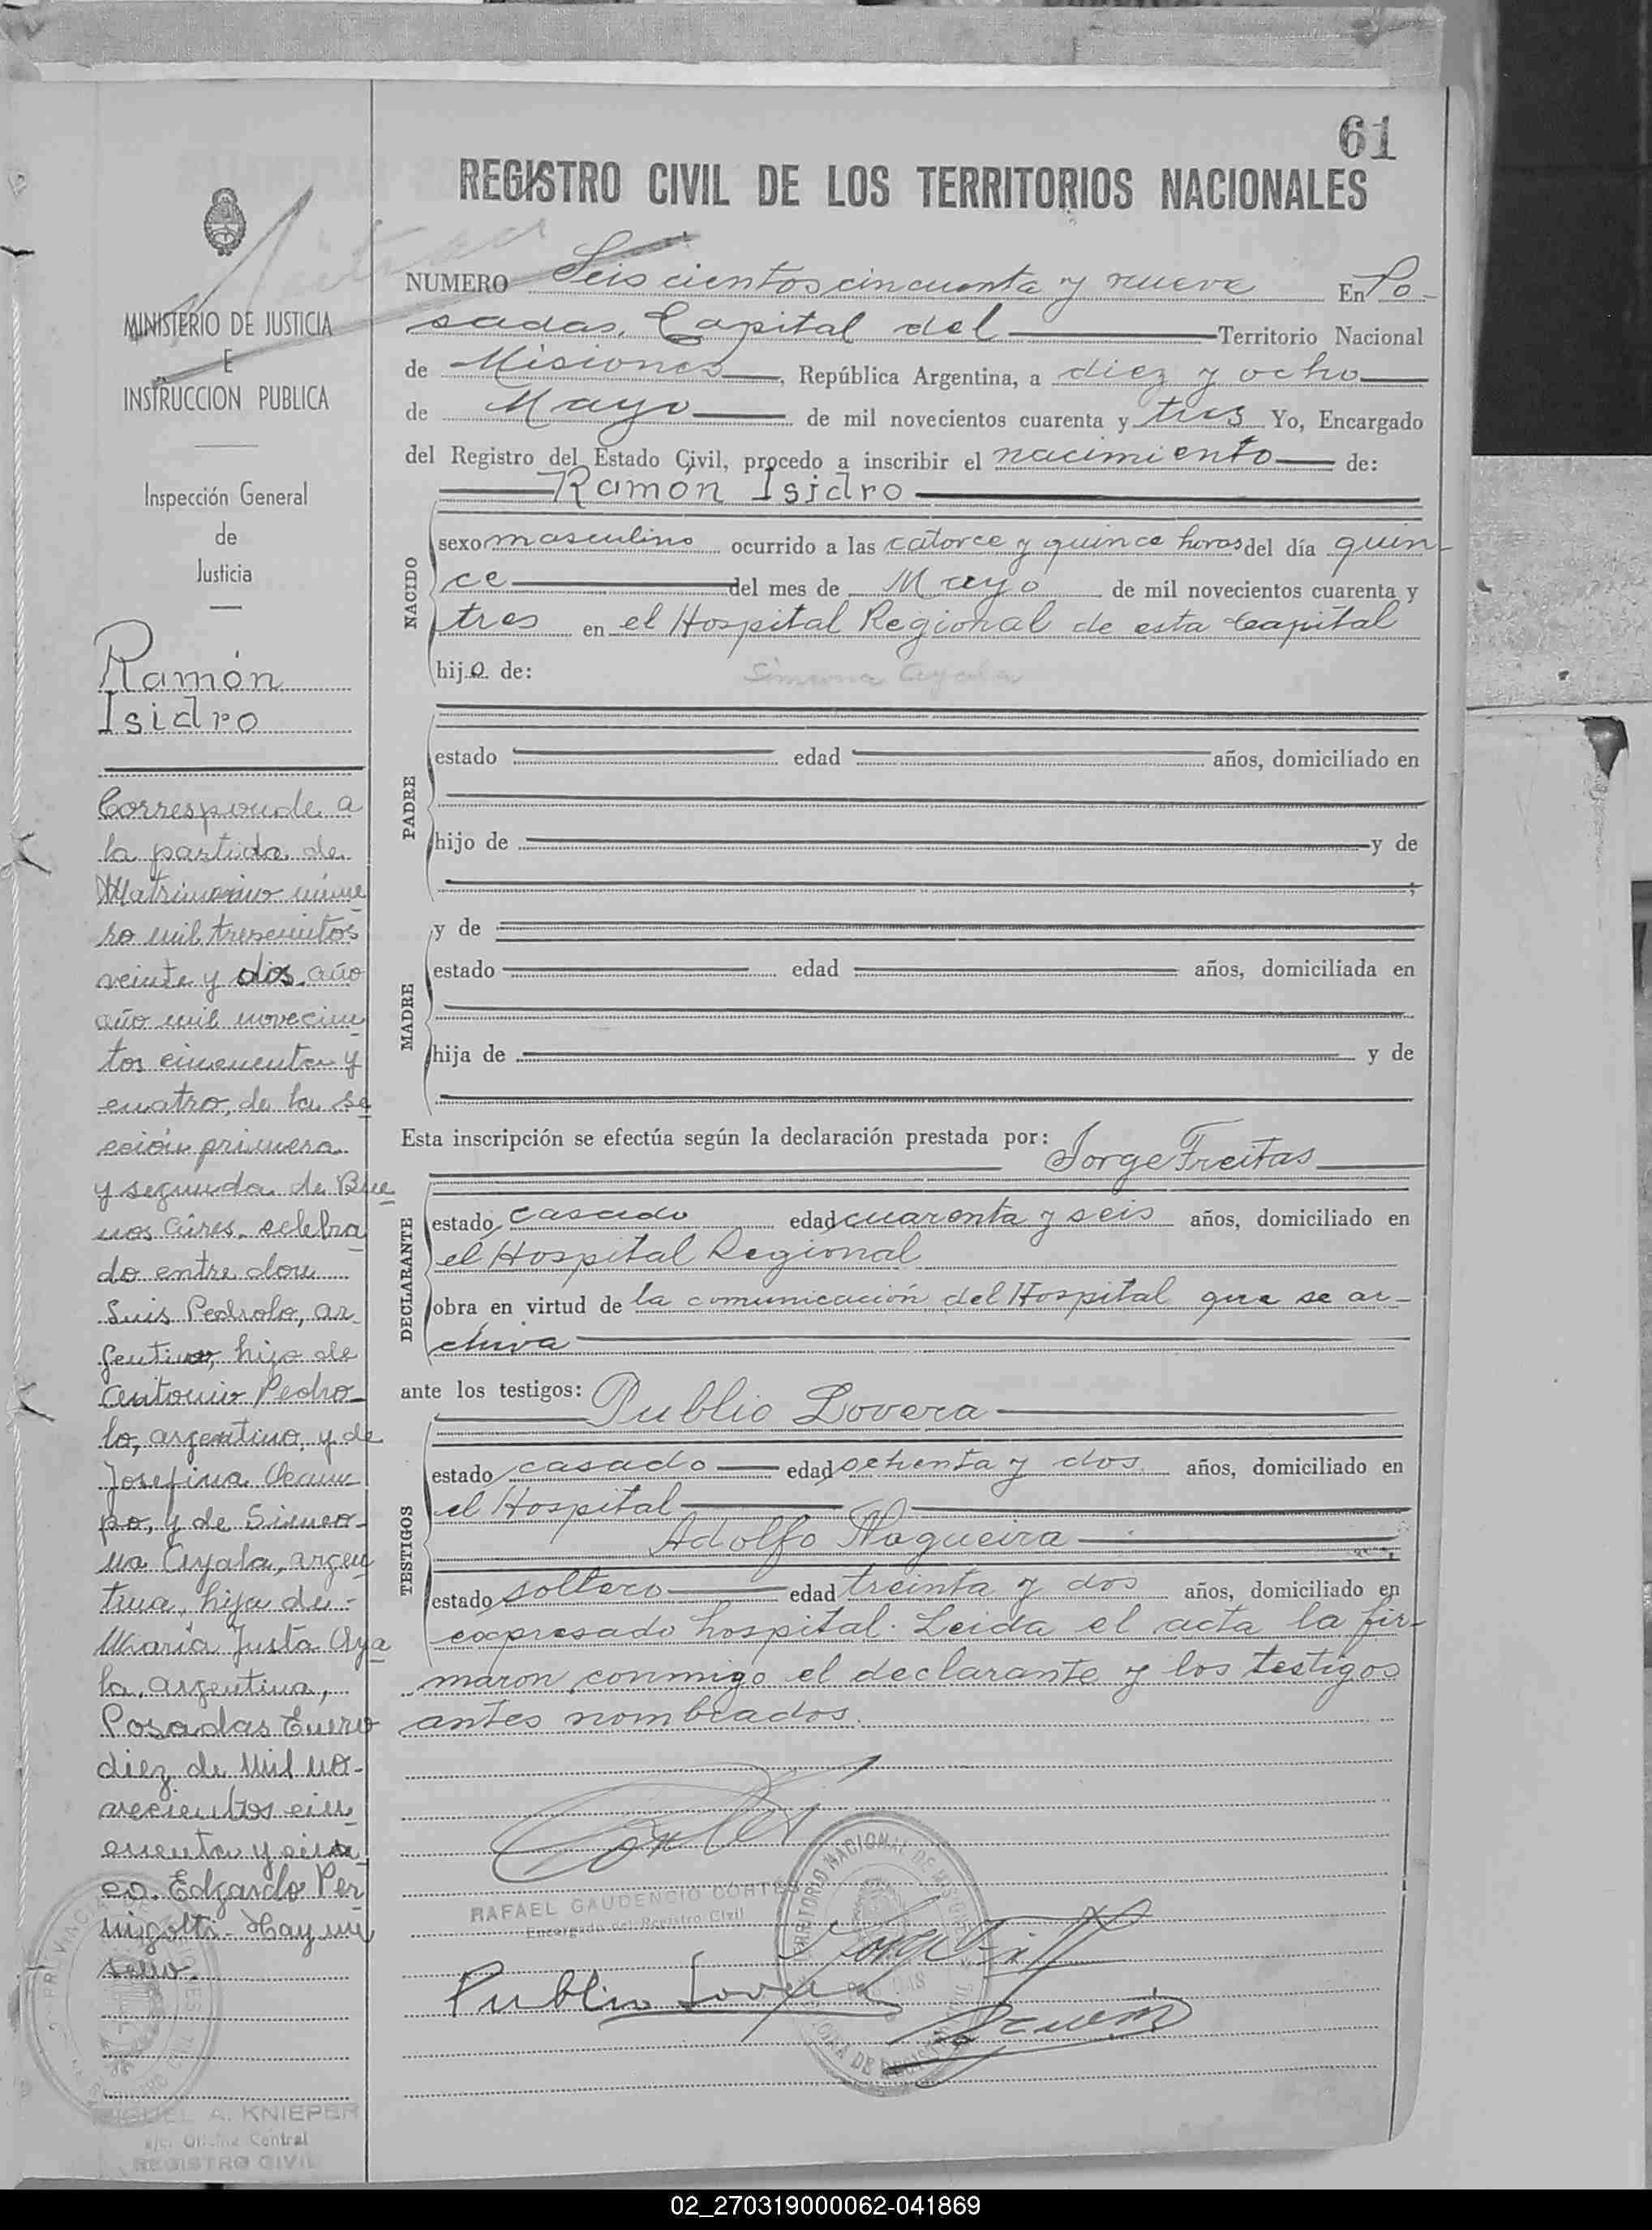 61
REGISTRO CIVIL DE LOS TERRITORIOS NACIONALES
MINISTERIO DE JUSTICIA
E
INSTRUCCION PUBLICA
Inspección General
de
Justicia
Ramón
Isidro
Corresponde a
la partida de
Matrimonio núme
ro mil trescientos
veinte y dos año
año mil novecien
tos cincuenta y
cuatro, de la se
cción primera
y segunda de Bue
nos Aires, celebra
do entre don
Luis Pedrolo, ar
gentino, hijo de
Antonio Pedro
lo, argentino, y de
Josefina
po, y de Simeo
na Ayala, argen
tina, hija de
María Justa Aya
la, argentina,
Posadas Enero
diez de mil no
vecientos cin
cuenta y cin
co. Edgardo Per
migotti. Hay un
sello.
MIGUEL A. KNIEPER
a/c. Oficina Central
REGISTRO CIVIL
NUMERO Seiscientos cincuenta y nueve En Po-
sadas, Capital del Territorio Nacional
de Misiones, República Argentina, a diez y ocho
de Mayo de mil novecientos cuarenta y tres Yo, Encargado
del Registro del Estado Civil, procedo a inscribir el nacimiento de:
Ramón Isidro
NACIDO
sexo masculino ocurrido a las catorce y quince horas del día quin-
ce del mes de Mayo de mil novecientos cuarenta y
tres en el Hospital Regional de esta Capital
hijo de: Simeona Ayala
PADRE
estado edad años, domiciliado en
hijo de y de
;
MADRE
y de
estado edad años, domiciliada en
hija de y de
Esta inscripción se efectúa según la declaración prestada por: Jorge Freitas
DECLARANTE
estado casado edad cuarenta y seis años, domiciliado en
el Hospital Regional
obra en virtud de la comunicación del Hospital que se ar-
chiva
ante los testigos: Publio Lovera
TESTIGOS
estado casado edad ochenta y dos años, domiciliado en
el Hospital
Adolfo Nogueira
estado soltero edad treinta y dos años, domiciliado en
expresado hospital. Leida el acta la fir-
maron conmigo el declarante y los testigos
antes nombrados.
RAFAEL GAUDENCIO CORTES
Encargado del Registro Civil
TERRITORIO NACIONAL DE MISIONES
Publio Lovera
02_270319000062-041869